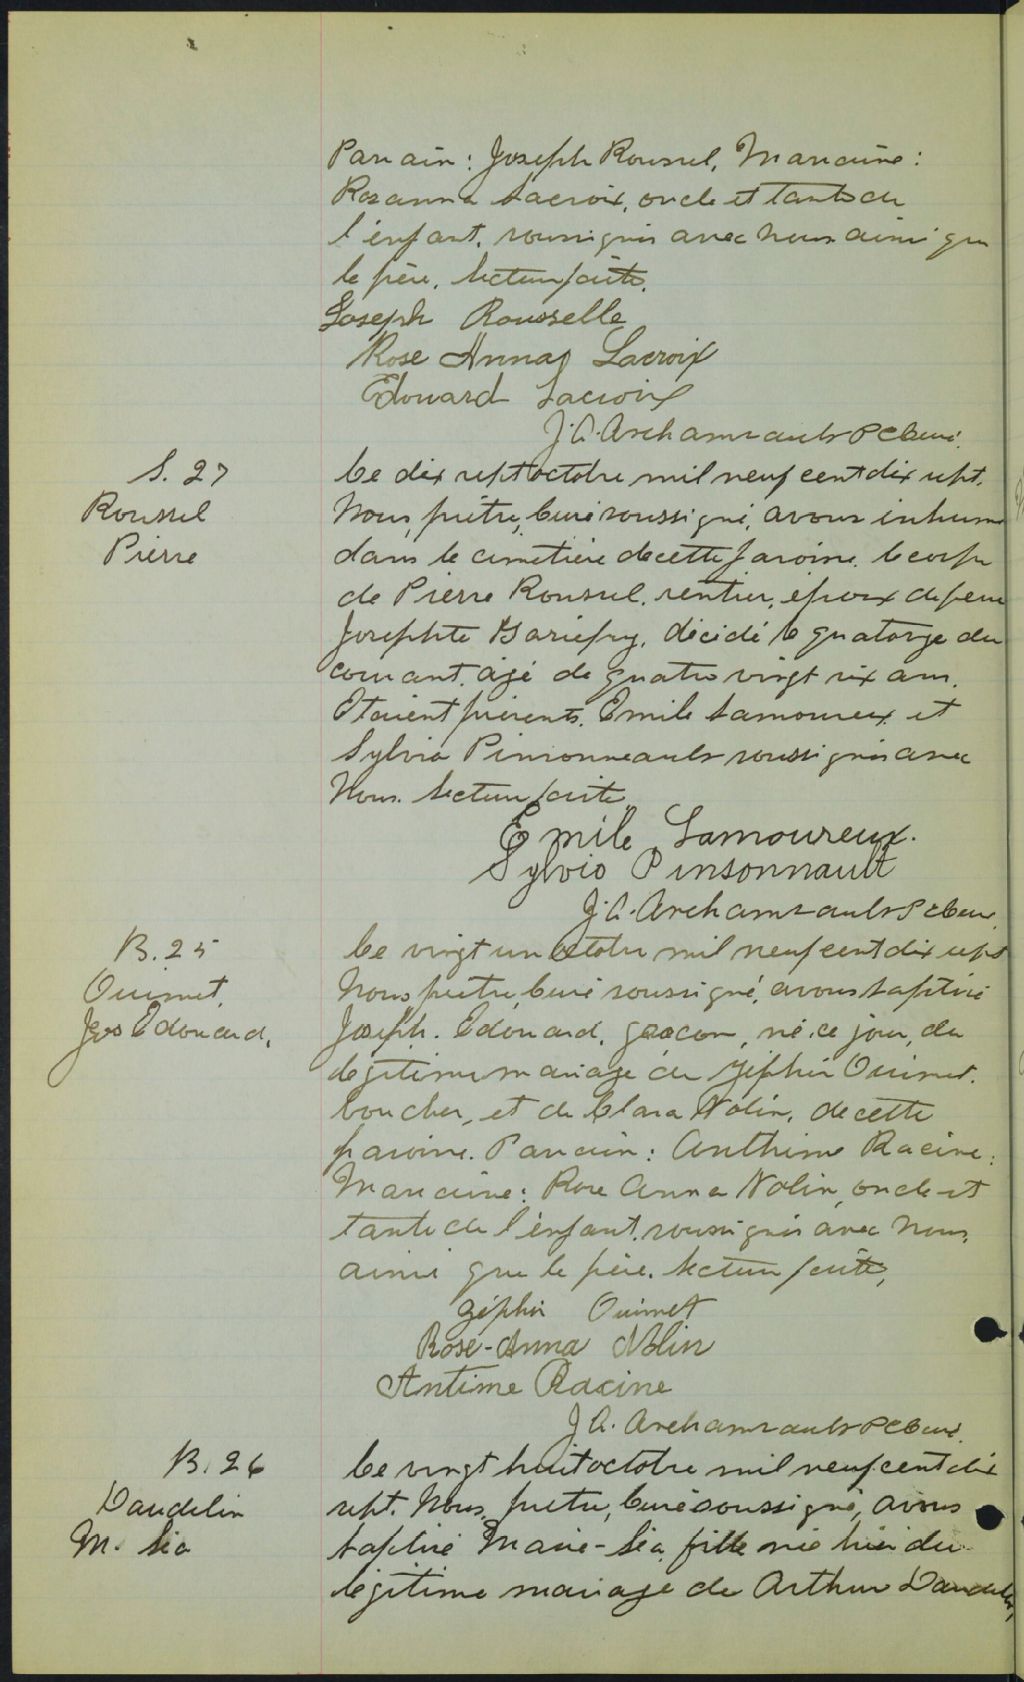 Parrain: Joseph Roussel, Marraine:
Rosanna Lacroix, oncle et tante de
l'enfant, soussignés avec nous ainsi que
le père. Lecture faite.
Joseph Rousselle
Rose Anna Lacroix
Edouard Lacroix
J.A. Archambault Ptre Curé.
S. 27
Roussel
Pierre
Le dix sept octobre mil neuf cent dix sept.
Nous, prêtre, Curé soussigné, avons inhumé
dans le cimetière de cette paroisse, le corps
de Pierre Roussel, rentier, époux de feue
Josephte Gariepy, décédé le quatorze du
courant, âgé de quatre vingt six ans.
Etaient présents, Emile Lamoureux et
Sylvio Pinsonneault soussignés avec
Nous. Lecture faite.
Emile Lamoureux.
Sylvio Pinsonnault
J.A. Archambault P Curé
B. 25
Ouimet,
Jos Edouard,
Le vingt un octobre mil neuf cent dix sept
Nous, prêtre, Curé soussigné, avons baptisé
Joseph. Edouard, garçon, né ce jour, du
légitime mariage de Zéphir Ouimet,
boucher, et de Clara Nolin, de cette
paroisse. Parrain: Anthime Racine;
Marraine: Rose Anna Nolin, oncle et
tante de l'enfant, soussignés avec Nous,
ainsi que le père. Lecture faite,
Zéphir Ouimet
Rose-Anna Nolin
Antime Racine
J A. Archambault P Curé.
B. 26
Daudelin
M. Léa
Le vingt huit octobre mil neuf cent dix
sept. Nous, prêtre, Curé soussigné, avons
baptisé Marie-Léa, fille née hier du
légitime mariage de Arthur Daudelin,